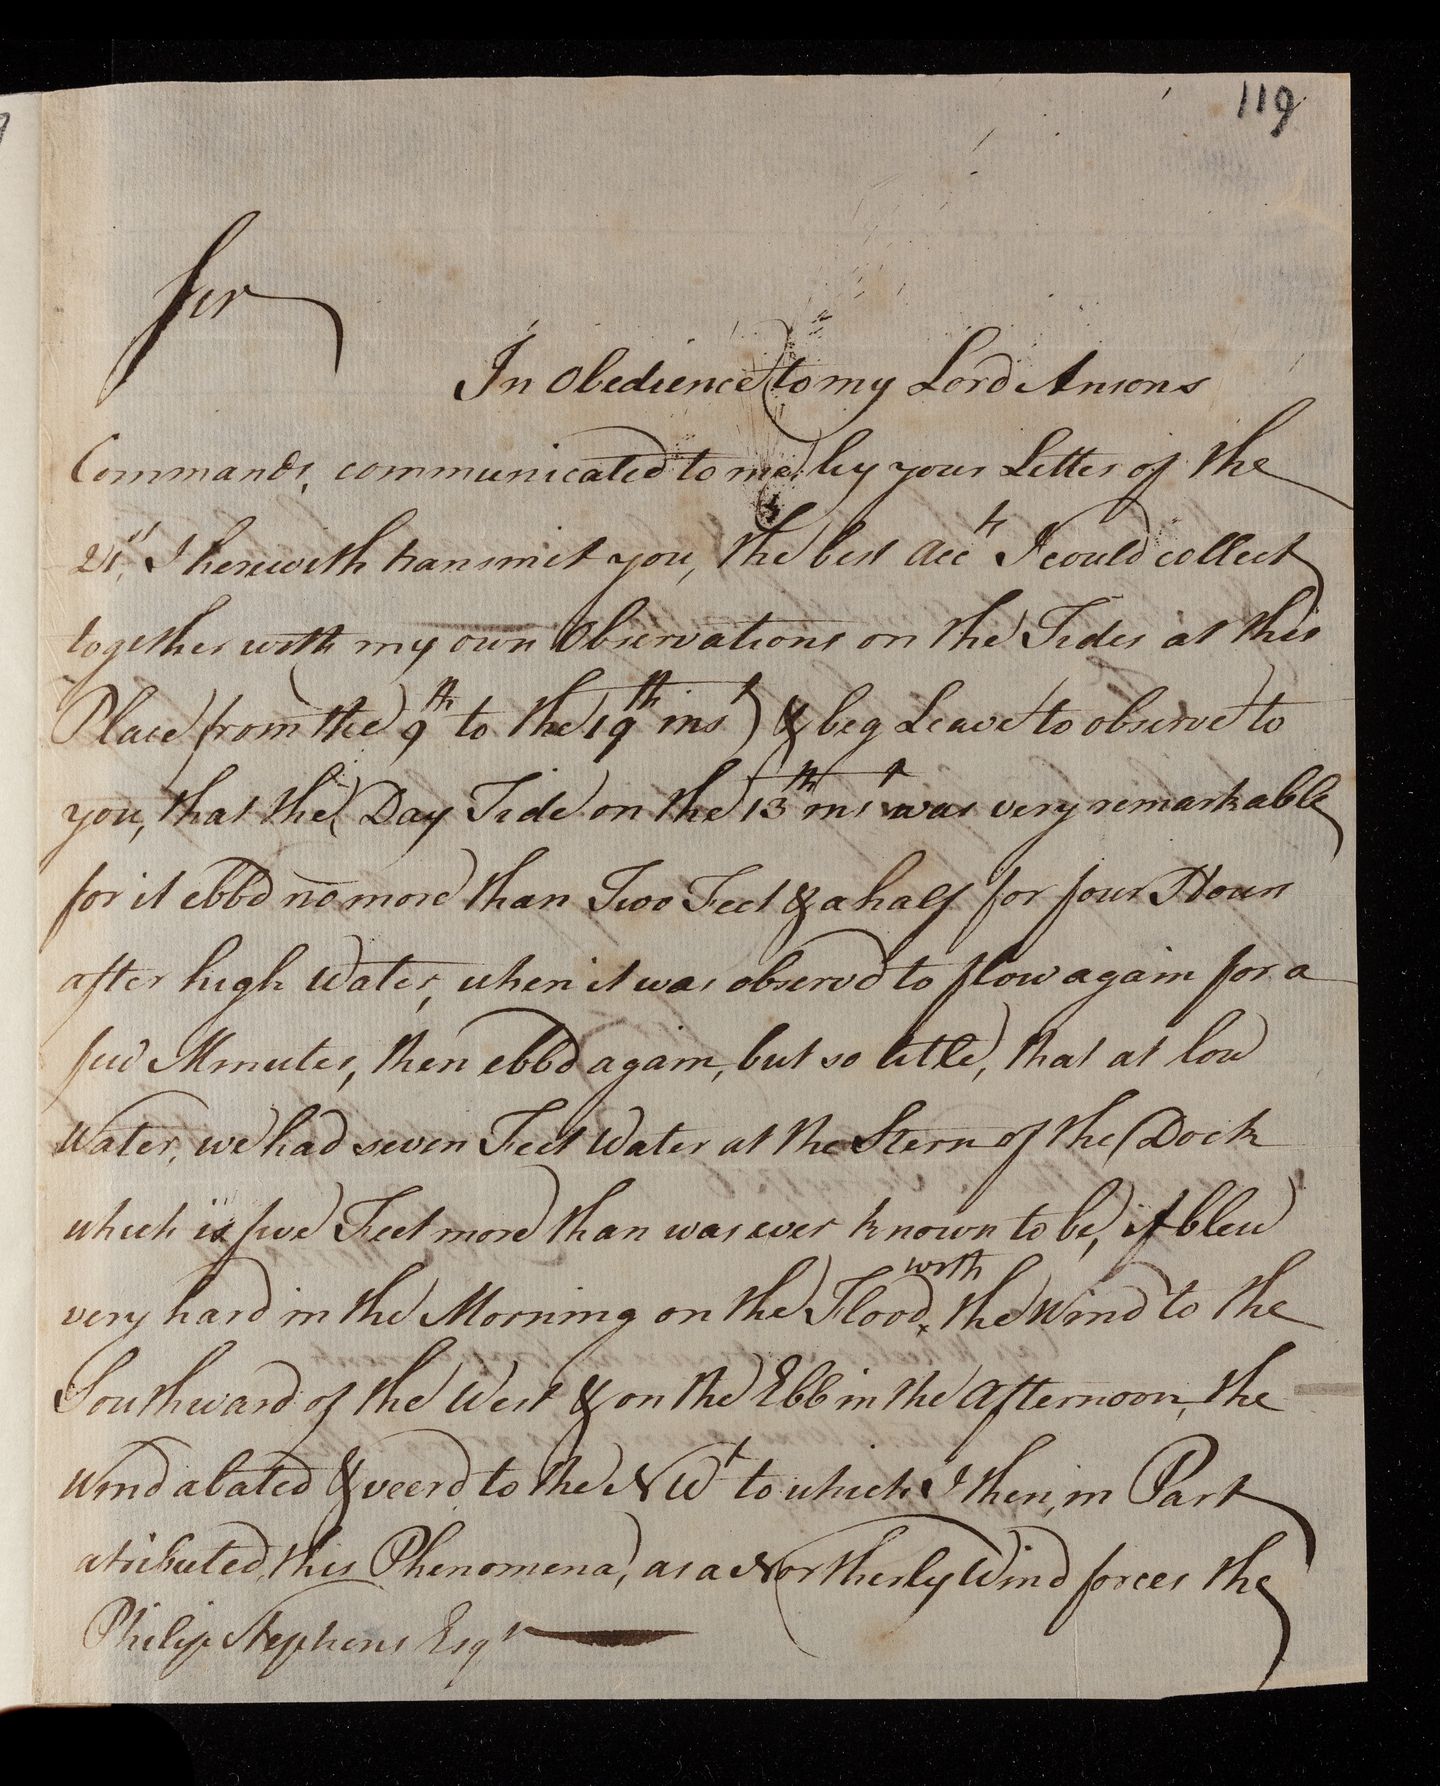 119
Sir
In Obedience to my Lord Ansons
Commands, communicated to me, by your Letter of the
21st, I herewith transmit you, the best Acct I could collect
together with my own Observations on the Tides at this
Place from the 9th to the 19th inst & beg Leave to observe to
you, that the Day Tide on the 13th inst was very remarkable
for it ebbd no more than Two Feet & a half for four Hours
after high Water, when it was observd to flow again for a
few Minutes, then ebbd again, but so little, that at low
Water, we had seven Feet Water at the Stern of the Dock
which is five Feet more than was ever known to be, it blew
very hard in the Morning on the Flood, with the Wind to the
Southward of the West & on the Ebb in the Afternoon, the
Wind abated & veerd to the NWt to which I then, in Part
atributed, this Phenomena, as a Northerly Wind forces the
Philip Stephens Esqr